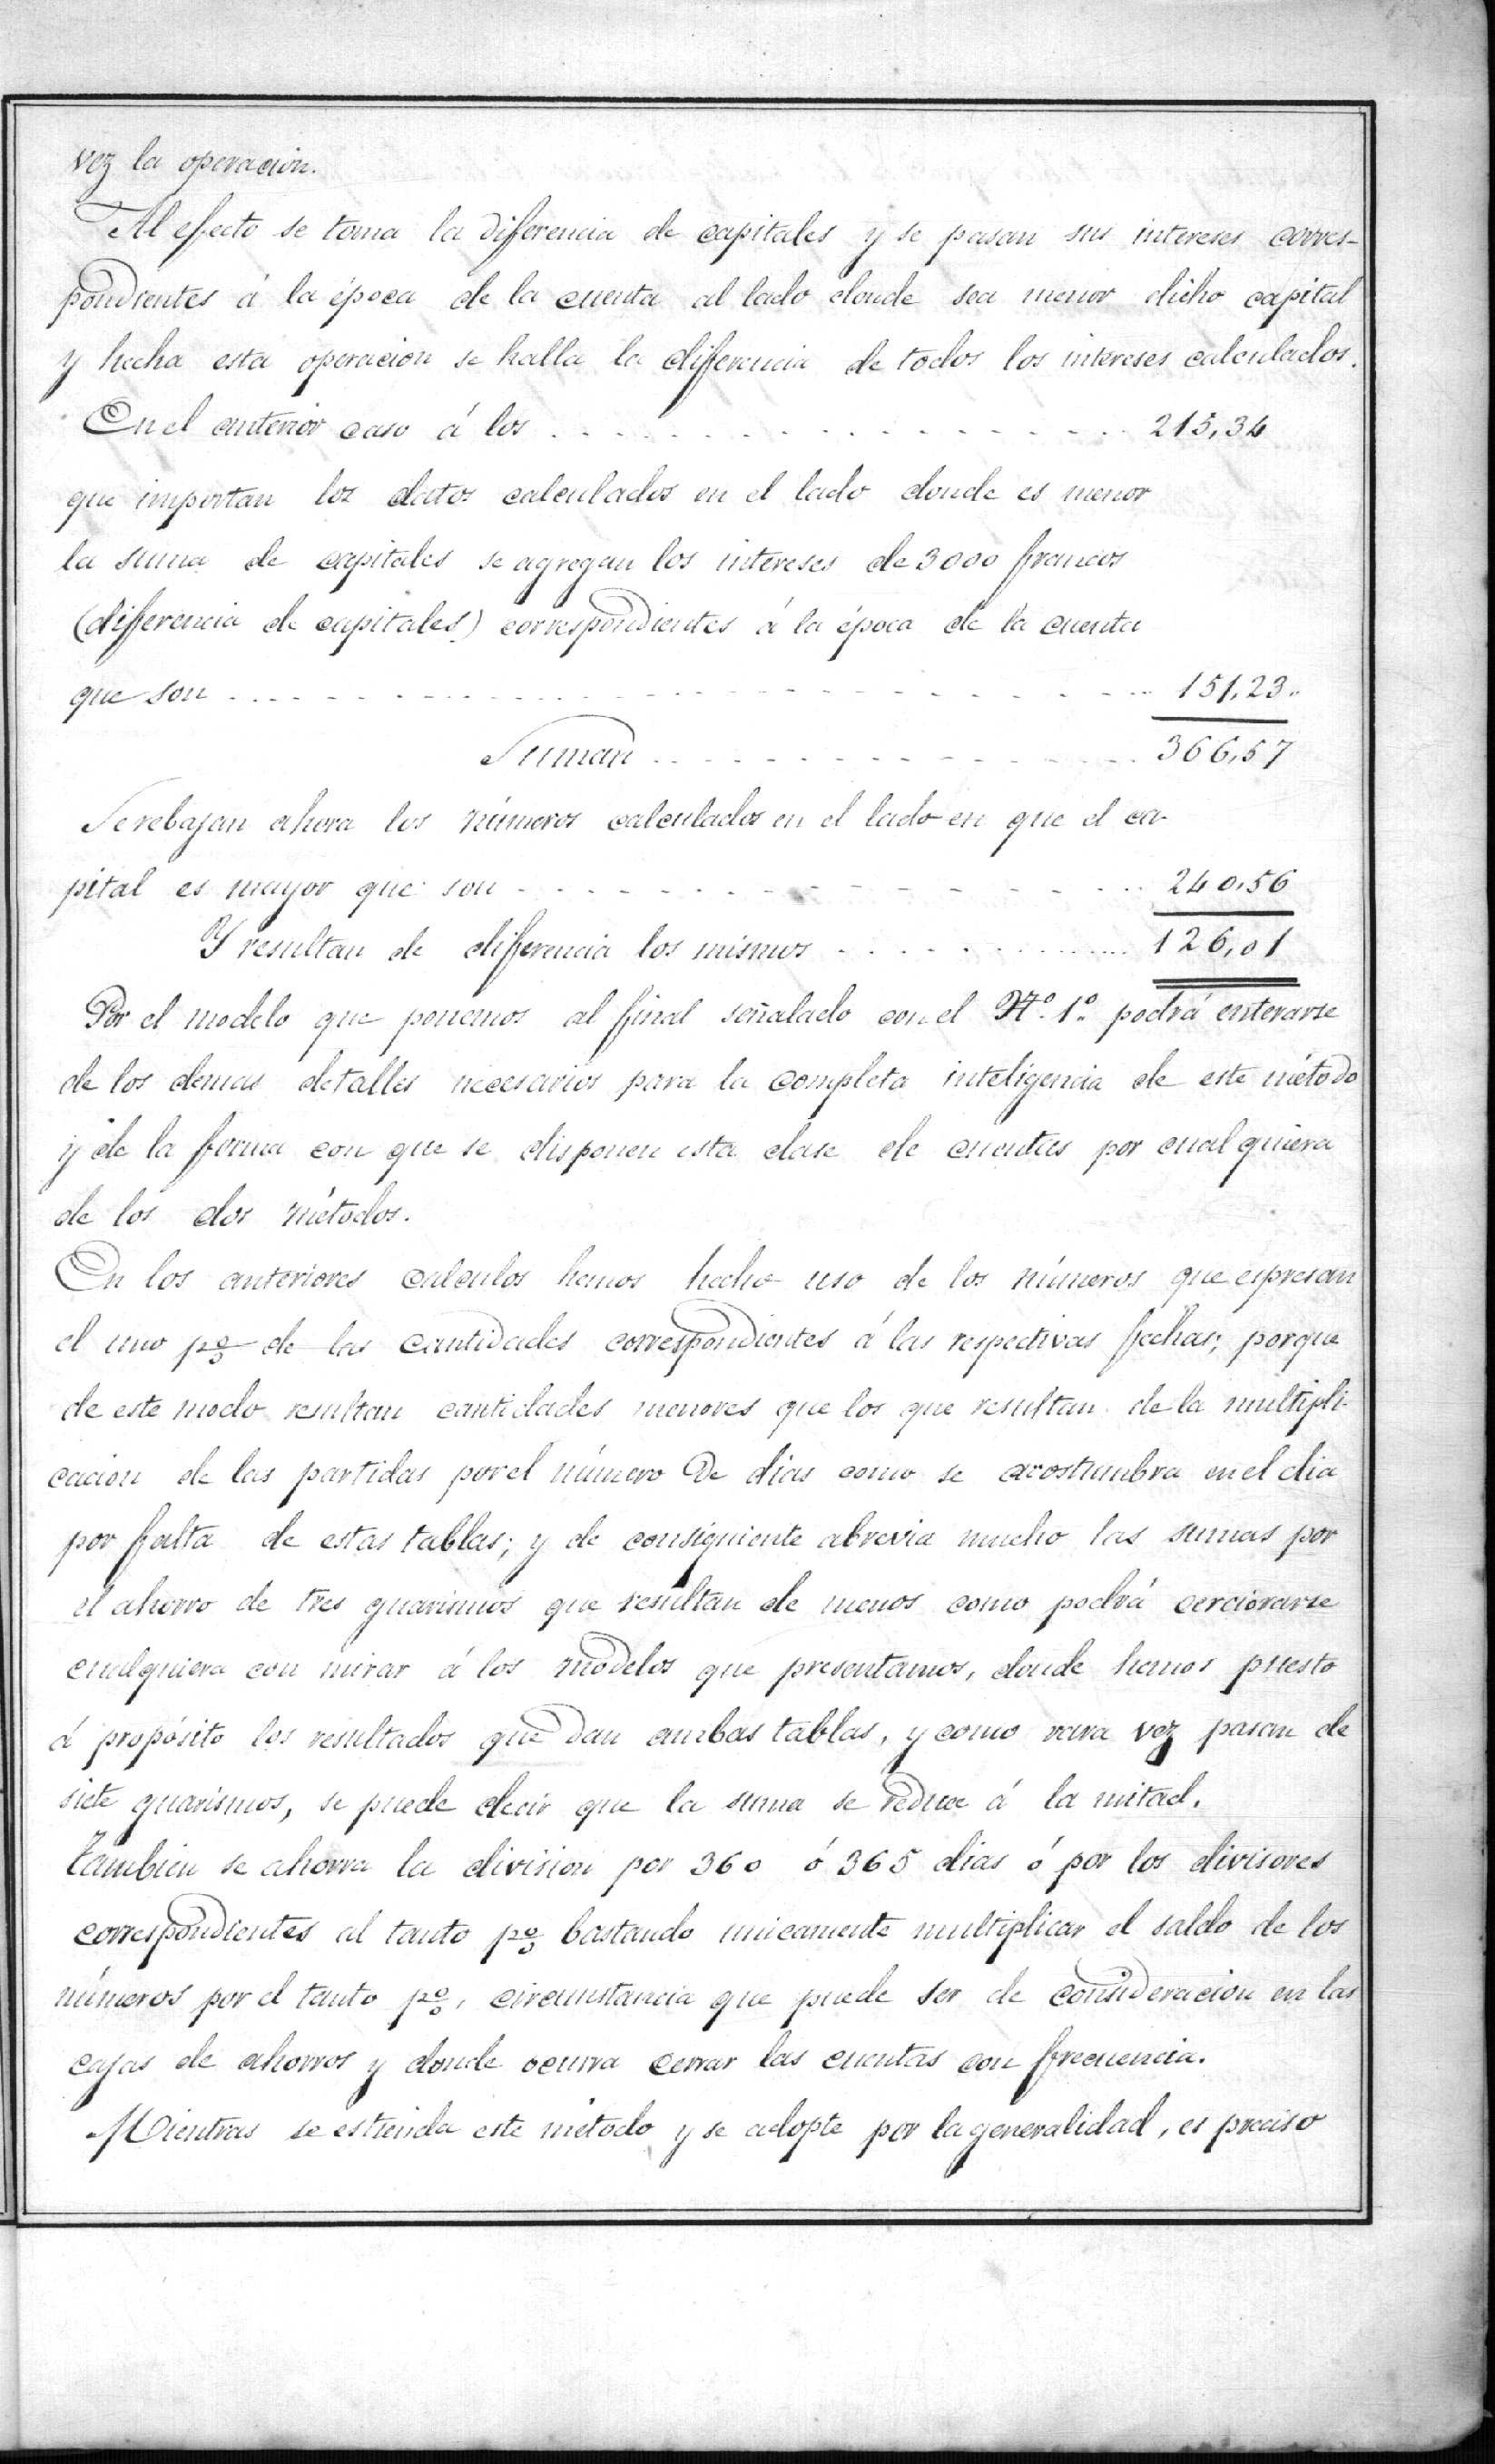 vez la operacion.
Al efecto se toma la diferencia de capitales y se pasan sus intereses corres-
pondientes á la época de la cuenta al lado donde sea menor dicho capital
y hecha esta operacion se halla la diferencia de todos los intereses calculados.
En el anterior caso á los . . . . . . . . . . . . . . . . . . 215,34
que importan los datos calculados en el lado donde es menor
la suma de capitales se agregan los intereses de 3000 francos
(diferencia de capitales) correspondientes á la época de la cuenta
que son . . . . . . . . . . . . . . . . . . . . . . . . . . . 151,23..
Suman . . . . . . . . . . . . . . . 366,57
Se rebajan ahora los números calculados en el lado en que el ca-
pital es mayor que son . . . . . . . . . . . . . . . . . 240,56
Y resultan de diferencia los mismos . . . . . . . . . . . 126,01
Por el modelo que ponemos al final señalado con el Nº. 1º podrá enterarse
de los demas detalles necesarios para la completa inteligencia de este método
y de la forma con que se disponen esta clase de cuentas por cualquiera
de los dos métodos.
En los anteriores calculos hemos hecho uso de los números que espresan
el uno p% de las cantidades correspondientes á las respectivas fechas; porque
de este modo resultan cantidades menores que los que resultan de la multipli-
cacion de las partidas por el número de dias como se acostumbra en el dia
por falta de estas tablas; y de consiguiente abrevia mucho las sumas por
el ahorro de tres guarismos que resultan de menos como podrá cerciorarse
cualquiera con mirar á los modelos que presentamos, donde hemos puesto
á propósito los resultados que dan ambas tablas, y como rara vez pasan de
siete guarismos, se puede decir que la suma se reduce á la mitad.
Tambien se ahorra la division por 360 ó 365 dias ó por los divisores
correspondientes al tanto p% bastando unicamente multiplicar el saldo de los
números por el tanto p%, circunstancia que puede ser de consideracion en las
cajas de ahorros y donde ocurra cerrar las cuentas con frecuencia.
Mientras se estienda este método y se adopte por la generalidad, es preciso